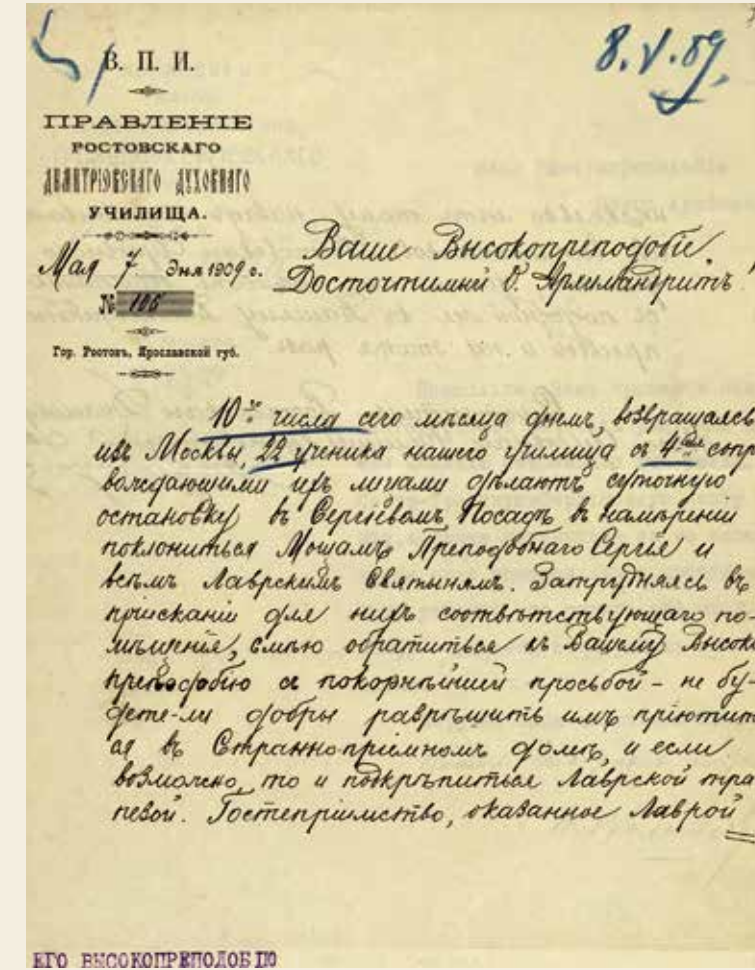 8.V.09,
В. П. И.
ПРАВЛЕНІЕ
РОСТОВСКАГО
ДИМИТРІЕВСКАГО ДУХОВНАГО
УЧИЛИЩА.
Мая 7 дня 1909 г.
№ 106
Гор. Ростовъ, Ярославской губ.
Ваше Высокопреподобіе,
Досточтимый О. Архимандритъ!
10го числа сего мѣсяца днемъ, возвращаясь
изъ Москвы, 22 ученика нашего училища съ 4мя сопро
вождающими ихъ лицами дѣлаютъ суточную
остановку въ Сергіевомъ Посадѣ въ намѣреніи
поклониться Мощамъ Преподобнаго Сергія и
всѣмъ Лаврскимъ Святынямъ. Затрудняясь въ
пріисканіи для нихъ соотвѣтствующаго по-
мѣщенія, смѣю обратиться къ Вашему Высоко
преподобію съ покорнѣйшей просьбой - не бу-
дете-ли добры разрѣшить имъ пріютить
ся въ Страннопріимномъ домѣ, и если
возможно, то и подкрѣпиться Лаврской тра
пезой. Гостепріимство, оказанное Лаврой
ЕГО ВЫСОКОПРЕПОДОБІЮ